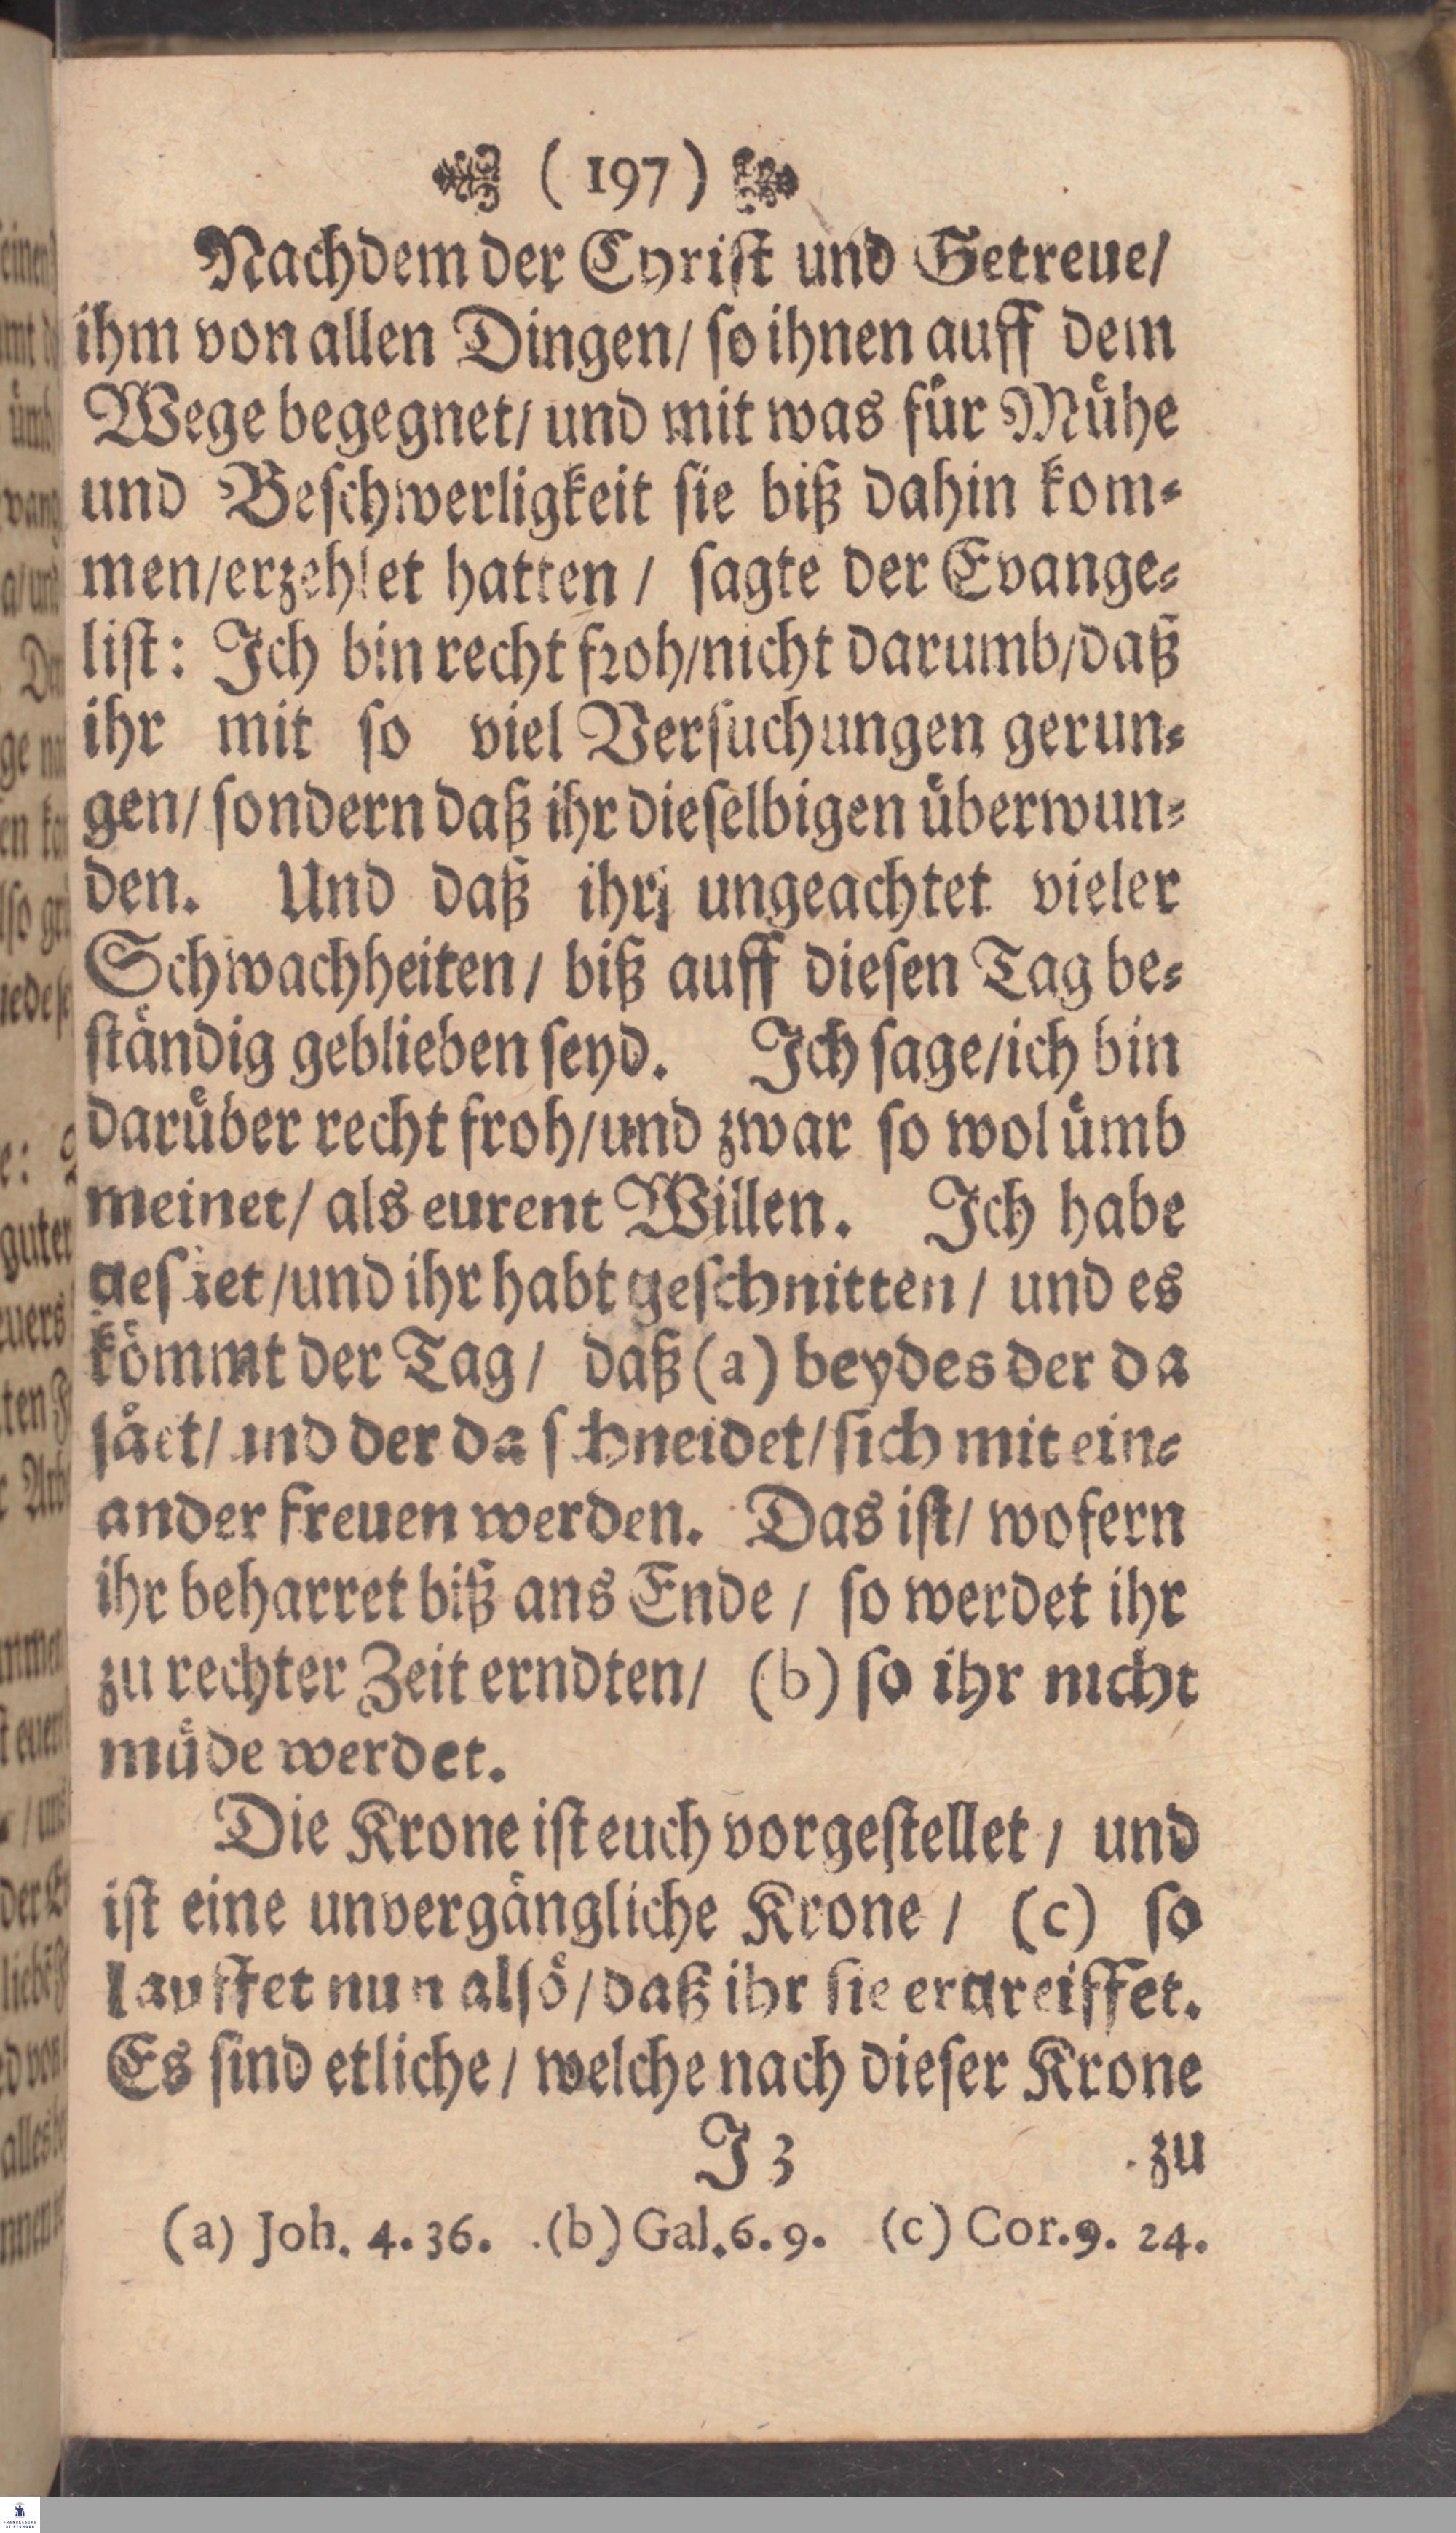 (197)
Nachdem der Chriſt und Getreue/
ihm von allen Dingen/ ſo ihnen auff dem
Wege begegnet/ und mit was fuͤr Muͤhe
und Beſchwerligkeit ſie biß dahin kom⸗
men/erzehlet hatten / ſagte der Evange⸗
liſt: Ich bin recht froh/nicht darumb/daß
ihr mit ſo viel Verſuchungen gerun⸗
gen/ ſondern daß ihr dieſelbigen uͤberwun⸗
den. Und daß ihr ungeachtet vieler
Schwachheiten / biß auff dieſen Tag be⸗
ſtaͤndig geblieben ſeyd. Ich ſage/ich bin
daruͤber recht froh/und zwar ſo wol uͤmb
meinet/ als eurent Willen. Ich habe
geſaͤet /und ihr habt geſchnitten / und es
koͤmmt der Tag / daß (a) beydes der da
ſaͤet/ und der da ſchneidet/ ſich mit ein⸗
ander freuen werden. Das iſt/ wofern
ihr beharret biß ans Ende / ſo werdet ihr
zu rechter Zeit erndten/ (b) ſo ihr nicht
muͤde werdet.
Die Krone iſt euch vorgeſtellet / und
iſt eine unvergaͤngliche Krone / (c) ſo
lauffet nun alſo/ daß ihr ſie ergreiffet.
Es ſind etliche / welche nach dieſer Krone
J 3 zu
(a) Joh. 4. 36. (b) Gal. 6. 9. (c) Cor. 9. 24.